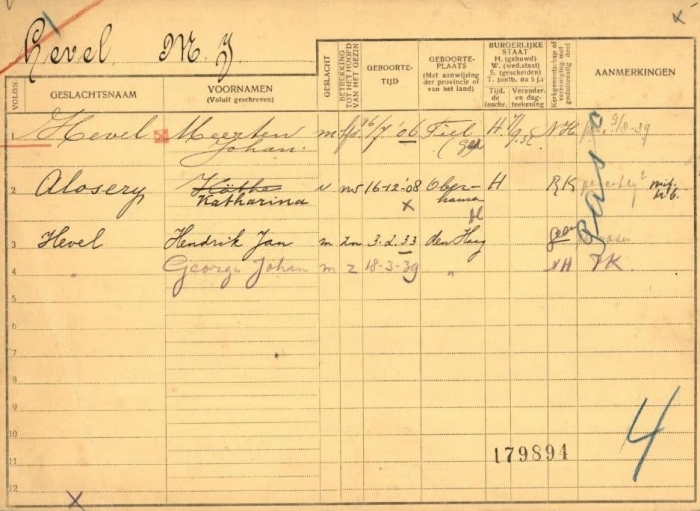 Hevel, M. J.
VOLGN.
GESLACHTSNAAM
VOORNAMEN
(Voluit geschreven)
GESLACHT
BETREKKING TOT HET HOOFD VAN HET GEZIN
GEBOORTE-
TIJD
GEBOORTE-
PLAATS
(Met aanwijzing
der provincie of
van het land)
BURGERLIJKE
STAAT
H. (gehuwd)
W. (wed.staat)
S. (gescheiden)
T. (ontb. na 5 j.)
Tijd. de inschr.
Verander. en dag-teekening
Kerkgenootschap of
AANMERKINGEN
1 Hevel Meerten m 16/7 '06 Tiel H. N.H. 9/8-39
Johan. (Gld
2 Alosery Käthe v 16-12-'08 Ober- H R.K.
Katharina x hausen
3 Hevel Hendrik Jan m zn 3.2.33 den Haag geen
4 " George Johan m z 18-3-39 " NH PK.
5
6
7
8
9
10
11
12
179894
4
x